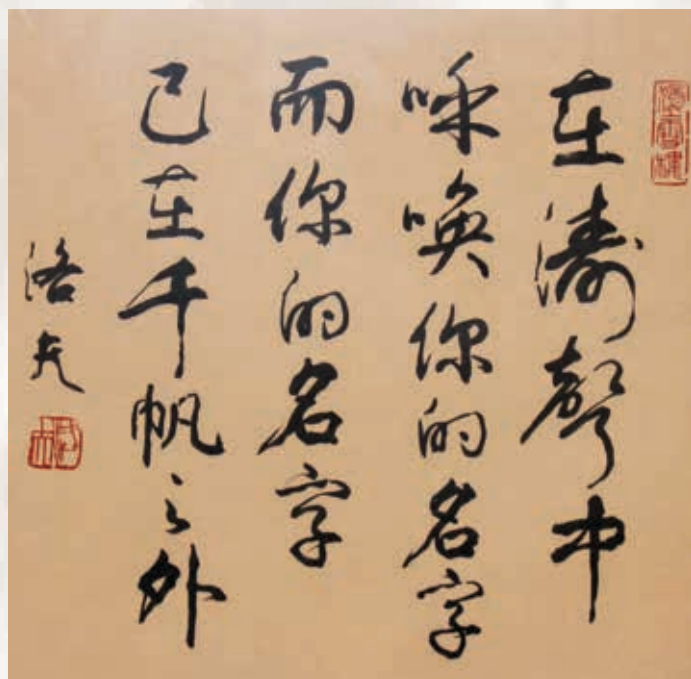 在濤聲中
呼喚你的名字
而你的名字
已在千帆之外
洛夫